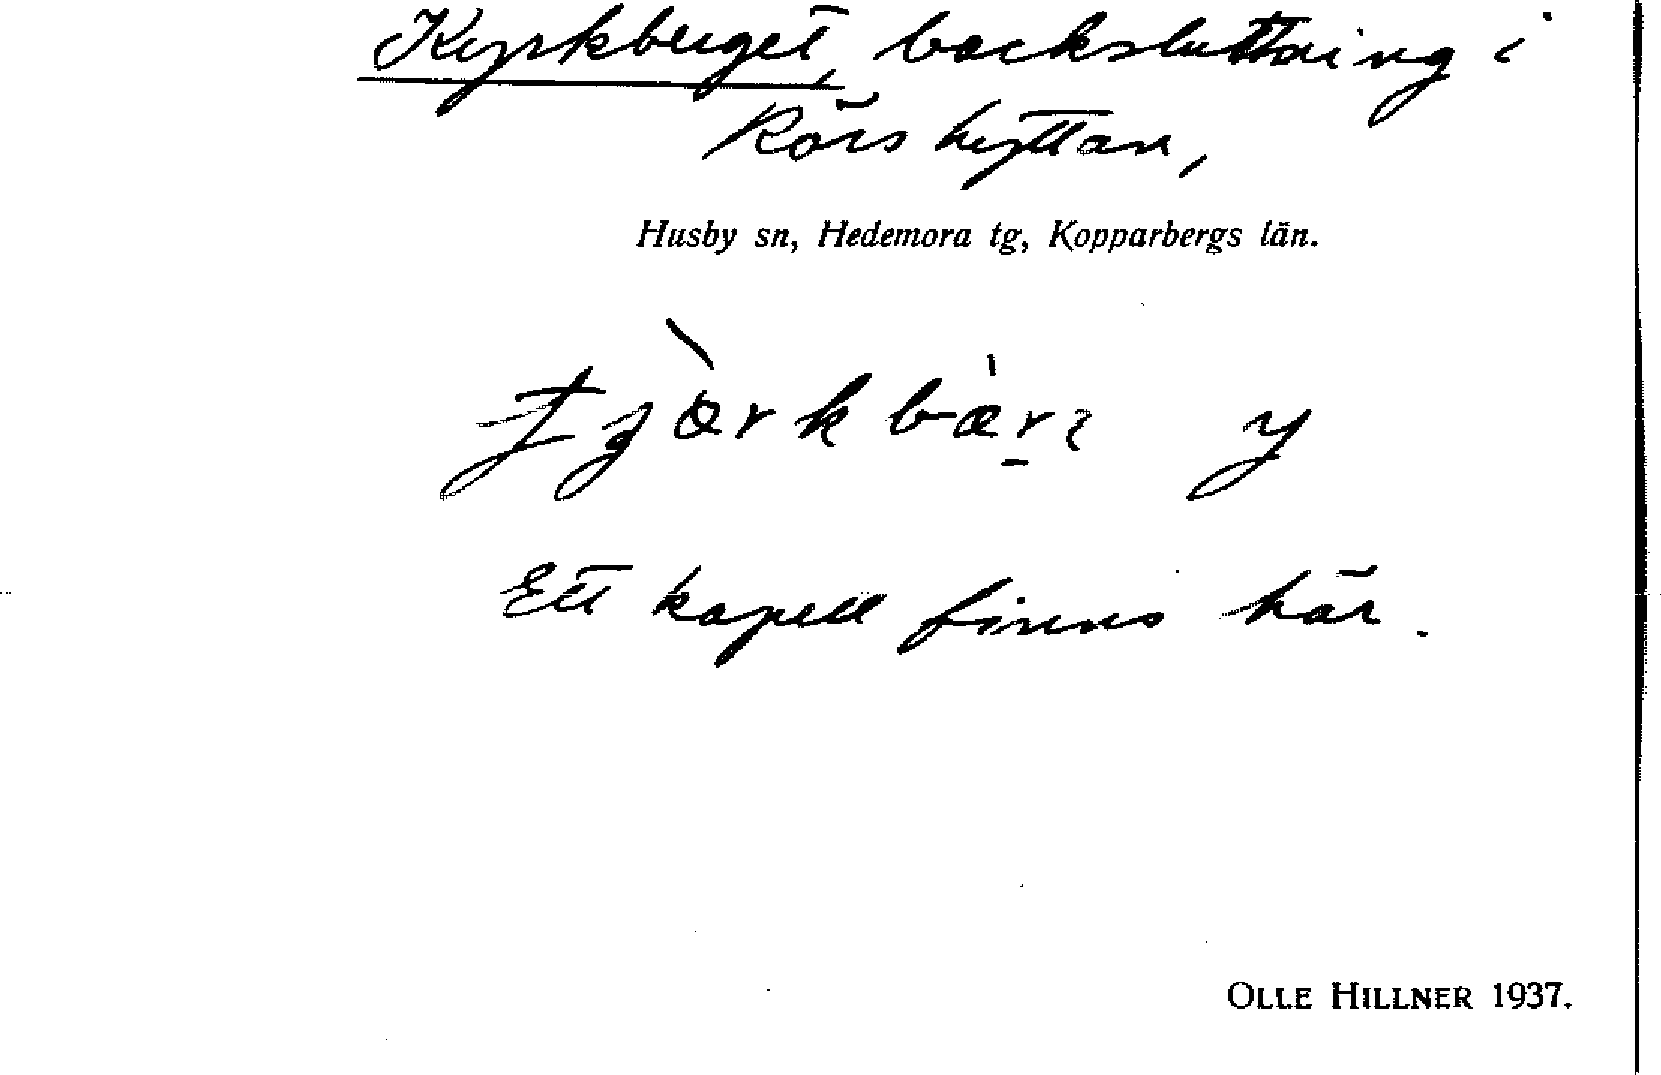 Kyrkberget, backsluttning i
Rörshyttan,
Husby sn, Hedemora tg, Kopparbergs län.
y
Ett kapell finns här.
OLLE HILLNER 1937.